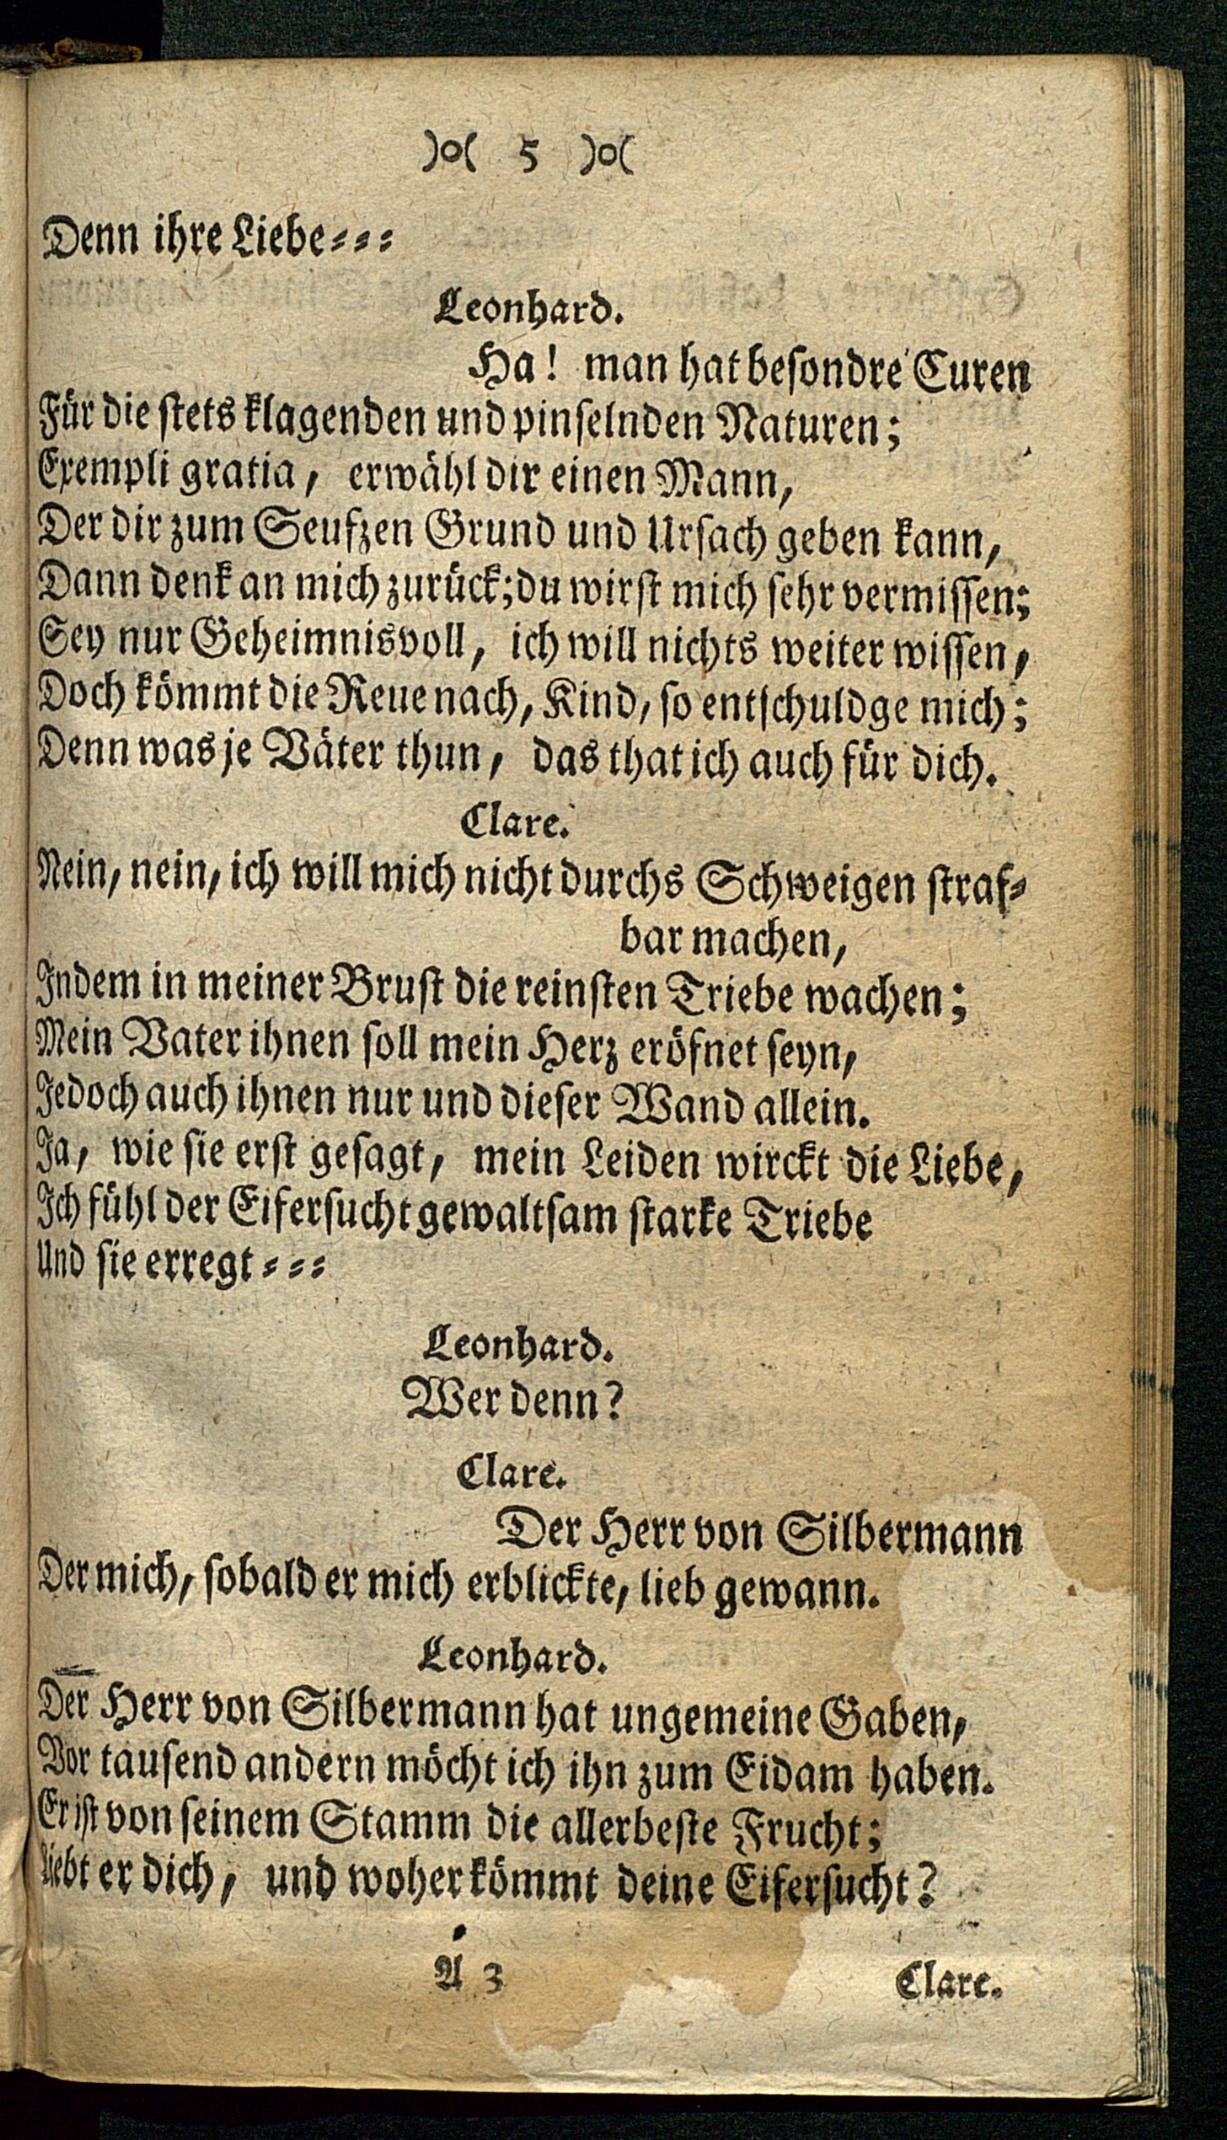 )o( 5 )o(
Denn ihre Liebe⸗⸗⸗
Leonhard.
Ha! man hat besondre Curen
Für die stets klagenden und pinselnden Naturen;
Exempli gratia, erwähl dir einen Mann,
Der dir zum Seufzen Grund und Ursach geben kann,
Dann denk an mich zurück; du wirst mich sehr vermissen;
Sey nur Geheimnisvoll, ich will nichts weiter wissen,
Doch kömmt die Reue nach, Kind, so entschuldge mich;
Denn was je Väter thun, das that ich auch für dich.
Clare.
Nein, nein, ich will mich nicht durchs Schweigen straf⸗
bar machen,
Indem in meiner Brust die reinsten Triebe wachen;
Mein Vater ihnen soll mein Herz eröfnet seyn,
Jedoch auch ihnen nur und dieser Wand allein.
Ja, wie sie erst gesagt, mein Leiden wirckt die Liebe,
Ich fühl der Eifersucht gewaltsam starke Triebe
Und sie erregt⸗⸗⸗
Leonhard.
Wer denn?
Clare.
Der Herr von Silbermann
Der mich, sobald er mich erblickte, lieb gewann.
Leonhard.
Der Herr von Silbermann hat ungemeine Gaben,
Vor tausend andern möcht ich ihn zum Eidam haben.
Er ist von seinem Stamm die allerbeste Frucht;
Liebt er dich, und woher kömmt deine Eifersucht?
A 3
Clare.